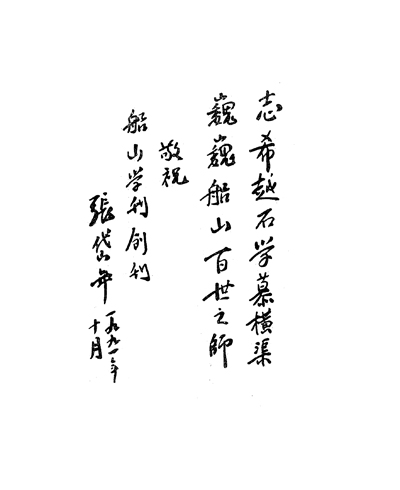 志希越石学慕橫渠
巍巍船山百世之師
敬祝
船山学刊创刊
張岱年
一九九一年
十月